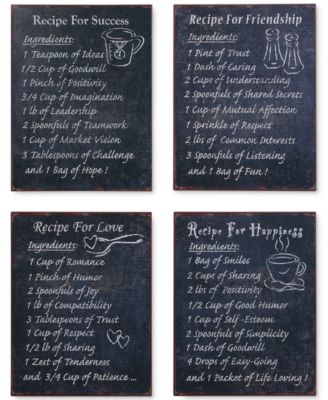 Recipe For Success
Ingredients:
1 Teaspoon of Ideas
1/2 Cup of Goodwill
1 Pinch of Positivity
3/4 Cup of Imagination
1 lb of Leadership
2 Spoonfuls of Teamwork
1 Cup of Market Vision
3 Tablespoons of Challenge
and 1 Bag of Hope !
Recipe For Friendship
Ingredients:
1 Pint of Trust
1 Dash of Caring
2 Cups of Understanding
2 Spoonfuls of Shared Secrets
1 Cup of Mutual Affection
1 Sprinkle of Respect
2 lbs of Common Interests
3 Spoonfuls of Listening
and 1 Bag of Fun !
Recipe For Love
Ingredients:
1 Cup of Romance
1 Pinch of Humor
2 Spoonfuls of Joy
1 lb of Compatibility
3 Tablespoons of Trust
1 Cup of Respect
1/2 lb of Sharing
1 Zest of Tenderness
and 3/4 Cup of Patience ...
Recipe For Happiness
Ingredients:
1 Bag of Smiles
2 Cups of Sharing
2 lbs of Positivity
1/2 Cup of Good Humor
1 Cup of Self-Esteem
2 Spoonfuls of Simplicity
1 Dash of Goodwill
4 Drops of Easy-Going
and 1 Packet of Life Loving !